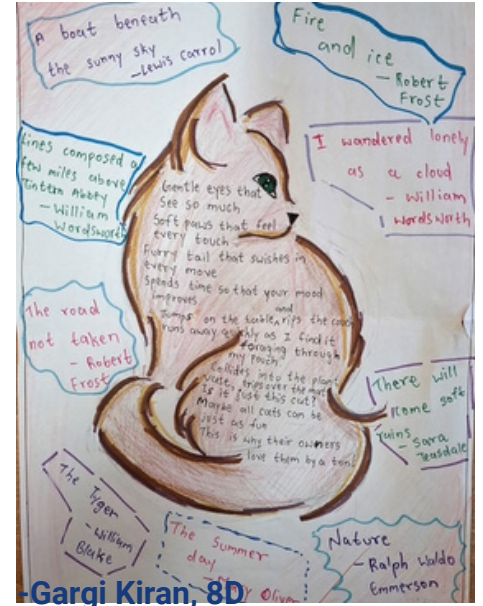 A boat beneath
the sunny sky
-Lewis Carrol
Fire
and ice
- Robert
Frost
Lines composed a
few miles above
Tintern Abbey
- William
Wordsworth
I wandered lonely
as a cloud
- William
Wordsworth
Gentle eyes that
See so much
Soft paws that feel
every touch
Furry tail that swishes in
every move
Spends time so that your mood
improves
Jumps on the table, and rips the couch
runs away quickly as I find it
foraging through
my pouch
Collides into the plant
vase, trips over the mat
Is it just this cat?
Maybe all cats can be
just as fun
This is why their owners
love them by a ton!
The road
not taken
- Robert
Frost
There will
come soft
rains
- Sara
Teasdale
The Tyger
- William
Blake
The Summer
day
- Mary Oliver
Nature
- Ralph Waldo
Emmerson
-Gargi Kiran, 8D